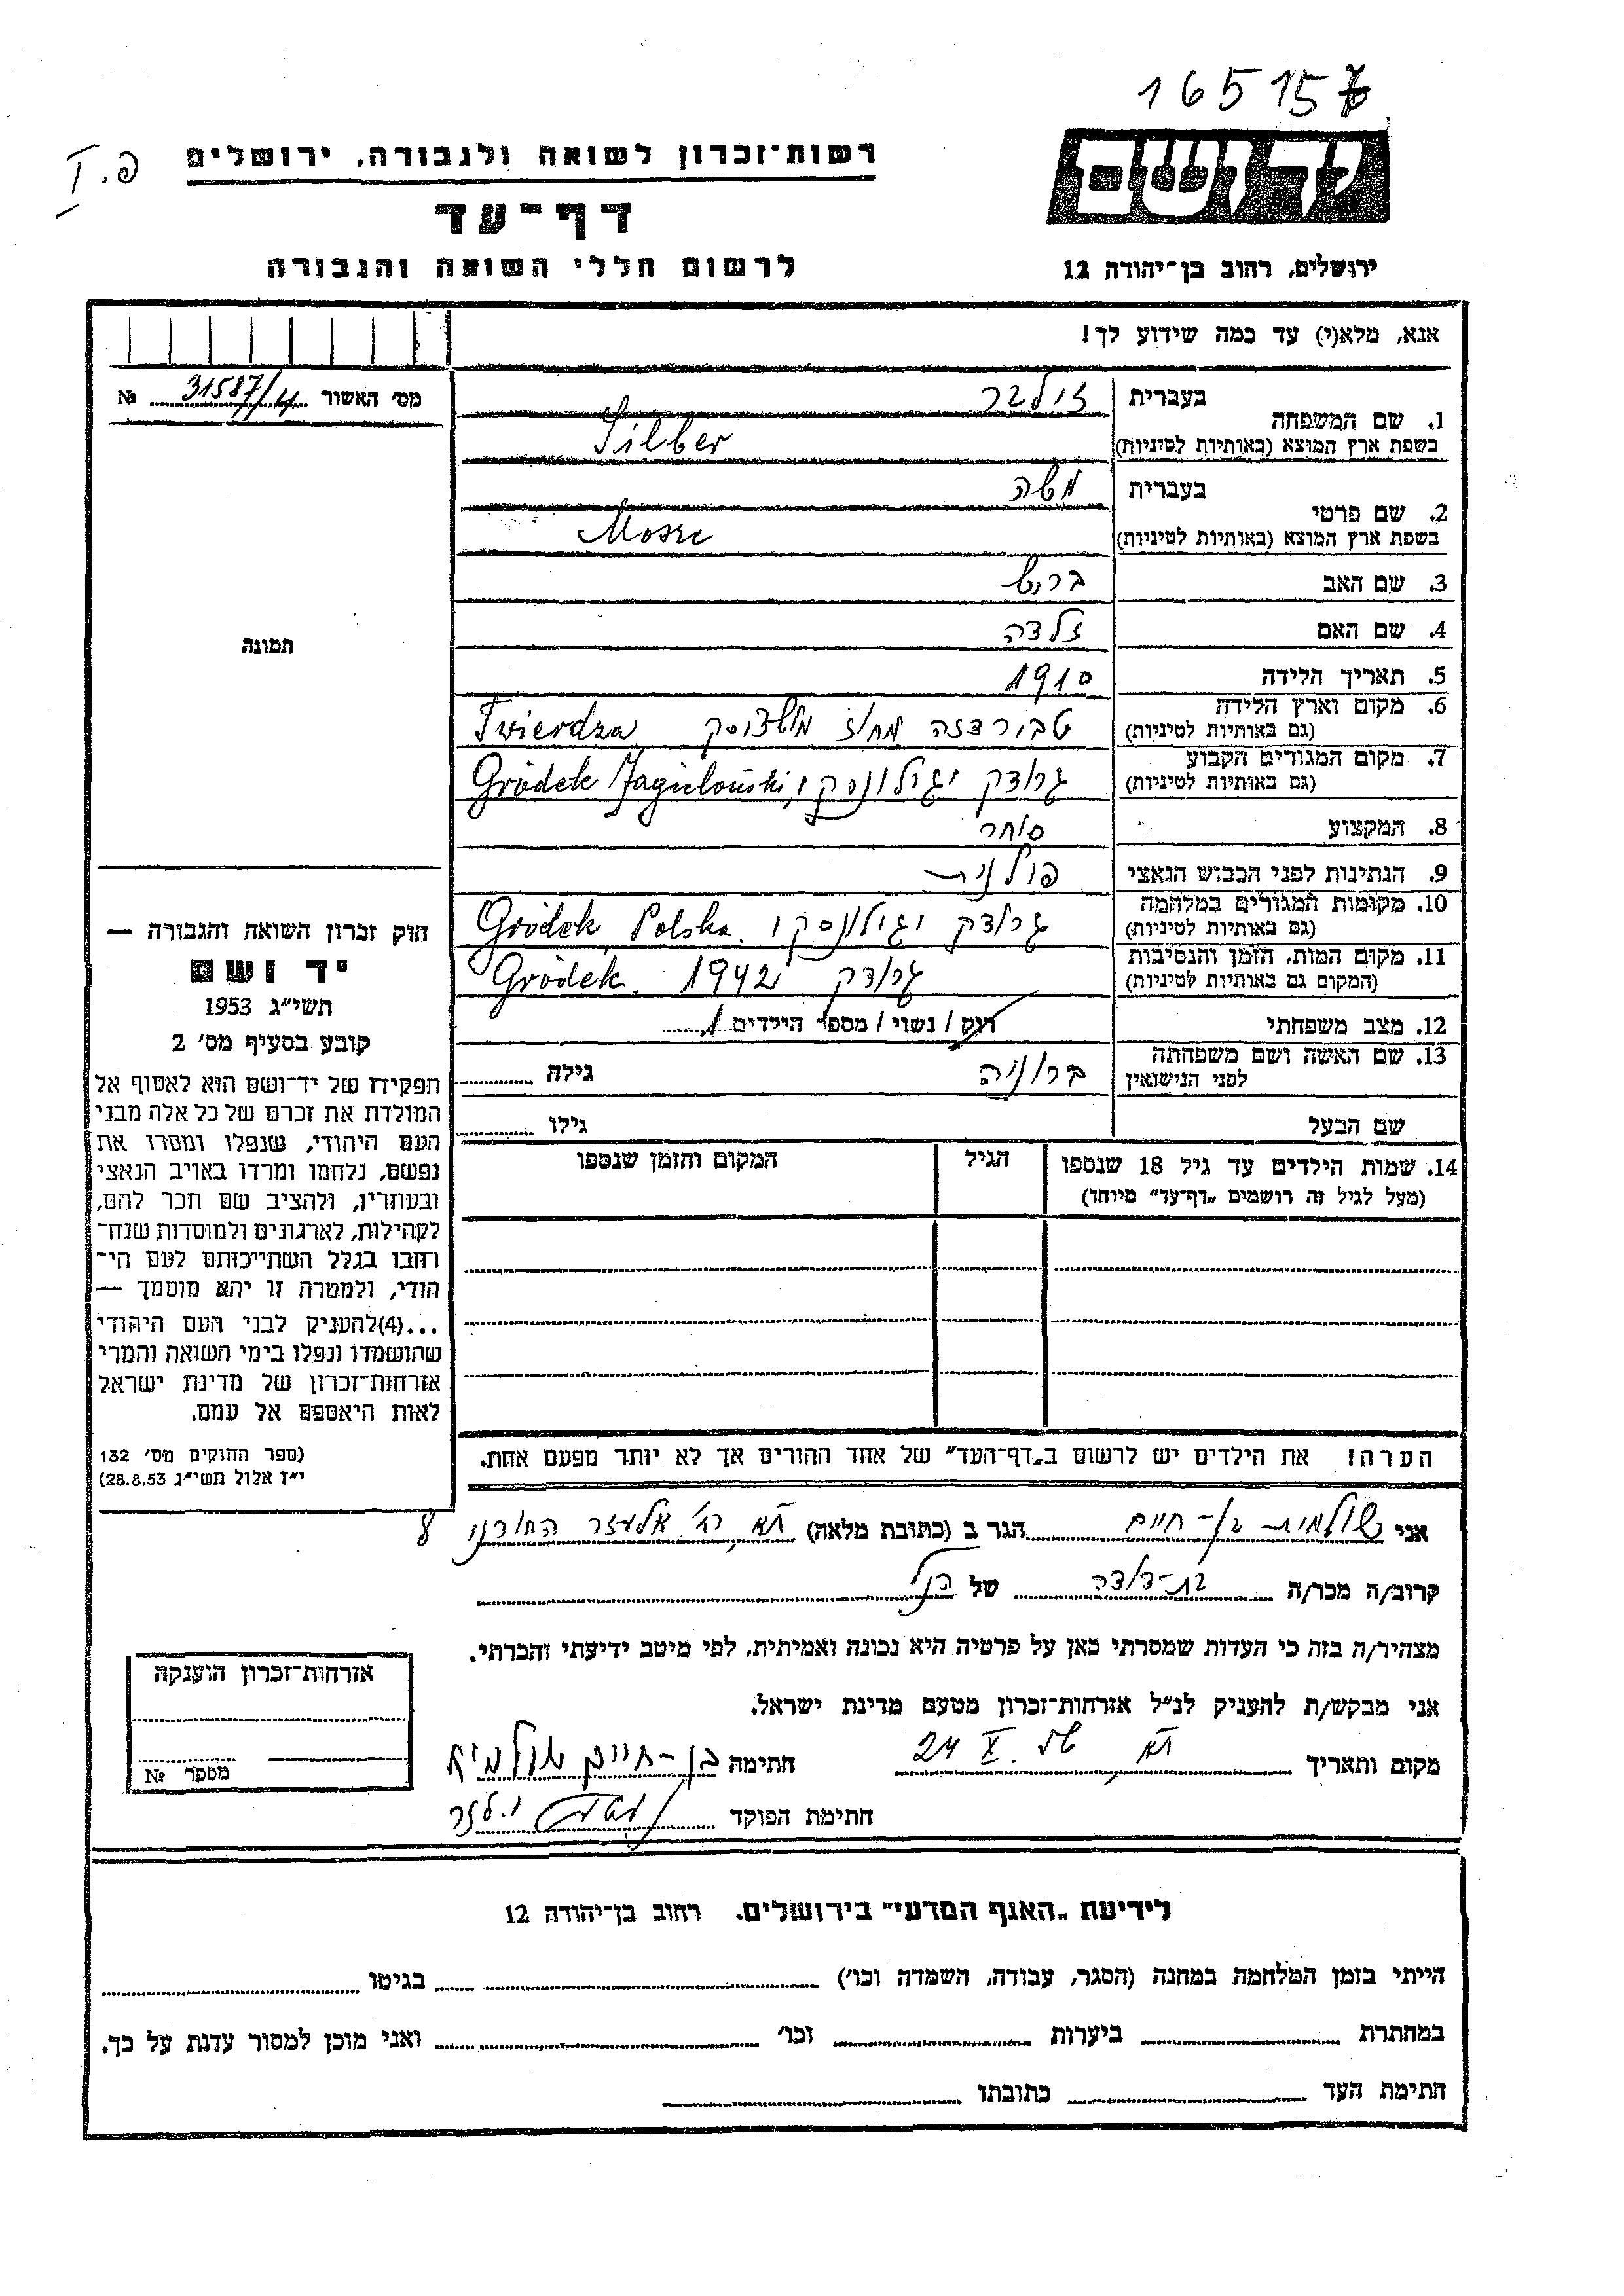 165157
פ. I
רשות־זכרון לשואה ולגבורה, ירושלים
יד ושם
דף־עד
לרשום חללי השואה והגבורה
ירושלים, רחוב בן־יהודה 12
אנא, מלא(י) עד כמה שידוע לך!
מס׳ האשור 31587/ № 
1. שם המשפחה בעברית זילבר
בשפת ארץ המוצא (באותיות לטיניות) Silber
2. שם פרטי בעברית משה
בשפת ארץ המוצא (באותיות לטיניות) Mosze
3. שם האב בריש
4. שם האם זלדה
5. תאריך הלידה 1910
6. מקום וארץ הלידה (גם באותיות לטיניות) טבורדזה מחוז Twierdza
7. מקום המגורים הקבוע (גם באותיות לטיניות) גרודק יגילונסקי, Gródek Jagieloński
8. המקצוע סוחר
9. הנתינות לפני הכבוש הנאצי פולנית
10. מקומות המגורים במלחמה (גם באותיות לטיניות) גרודק יגילונסקי Gródek, Polska.
11. מקום המות, הזמן והנסיבות (המקום גם באותיות לטיניות) גרודק 1942 Gródek.
12. מצב משפחתי רווק / נשוי / מספר הילדים 1
13. שם האשה ושם משפחתה לפני הנישואין ברוניה גילה
שם הבעל גילו
14. שמות הילדים עד גיל 18 שנספו
(מעל לגיל זה רושמים „דף־עד״ מיוחד)
הגיל
המקום והזמן שנספו
הערה! את הילדים יש לרשום ב„דף־העד״ של אחד ההורים אך לא יותר מפעם אחת.
תמונה
חוק זכרון השואה והגבורה —
יד ושם
תשי״ג 1953
קובע בסעיף מס׳ 2
תפקידו של יד־ושם הוא לאסוף אל
המולדת את זכרם של כל אלה מבני
העם היהודי, שנפלו ומסרו את
נפשם, נלחמו ומרדו באויב הנאצי
ובעוזריו, ולהציב שם וזכר להם,
לקהילות, לארגונים ולמוסדות שנח־
רחבו בגלל השתייכותם לעם הי־
הודי, ולמטרה זו יהא מוסמך —
...(4)להעניק לבני העם היהודי
שהושמדו ונפלו בימי השואה והמרי
אזרחות־זכרון של מדינת ישראל
לאות היאספם אל עמם.
(ספר החוקים מס׳ 132
י״ז אלול תשי״ג 28.8.53)
אני שולמית בן-חיים הגר ב (כתובת מלאה) תא, רח׳ אלעזר החורני 8
קרוב/ה מכר/ה בת-דודה של הנ״ל
מצהיר/ה בזה כי העדות שמסרתי כאן על פרטיה היא נכונה ואמיתית, לפי מיטב ידיעתי והכרתי.
אני מבקש/ת להעניק לנ״ל אזרחות־זכרון מטעם מדינת ישראל.
מקום ותאריך תא 24 X. חתימה בן-חיים שולמית
חתימת הפוקד
אזרחות־זכרון הוענקה
מספר №
לידיעת „האגף המדעי״ בירושלים. רחוב בן־יהודה 12
הייתי בזמן המלחמה במחנה (הסגר, עבודה, השמדה וכו׳) בגיטו
במחתרת ביערות וכו׳ ואני מוכן למסור עדות על כך.
חתימת העד כתובתו